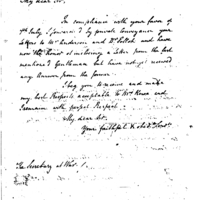 My dear Sir,
In compliance with your favor of
7th July I forward by private conveyance your
letters to Mr Anderson, and Dr and have
now the Honor of inclosing a letter from the last
mentioned Gentleman but have not yet received
any Answer from the former.
I beg you to receive and make
my best Respects acceptable to Mrs Knox and
remain with perfect Respect
My dear Sir,
Your faithful & obedt Servt
The Secretary at War.